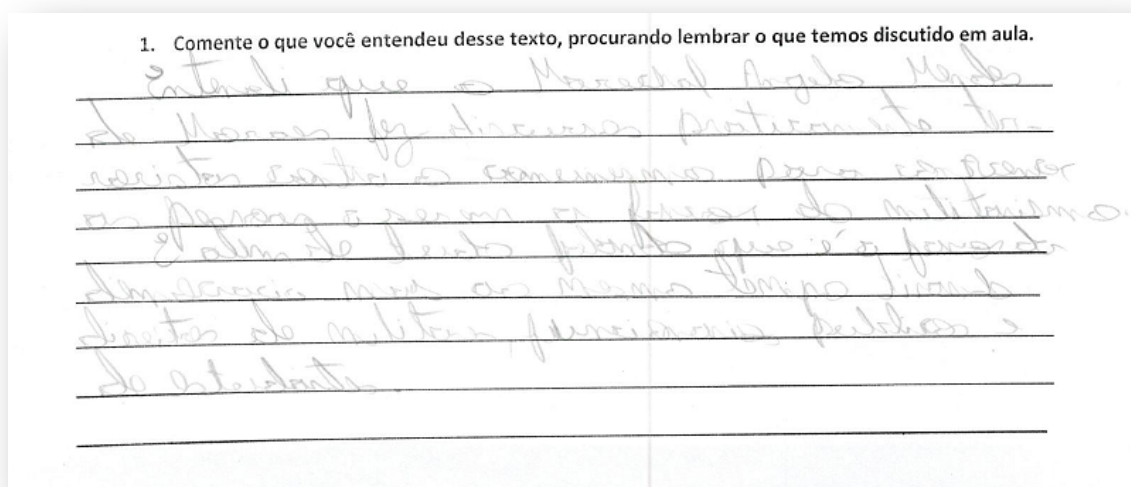 1. Comente o que você entendeu desse texto, procurando lembrar o que temos discutido em aula.
Entendi que o Marechal Angelo Mendes
de Moraes fez discursos praticamente ter-
roristas contra o comunismo para
as pessoas a serem a favor do militarismo.
E alem de falando que é a favor da
democracia mas ao mesmo tempo tirando
direitos de militar, funcionarios publicos e
de estudante.